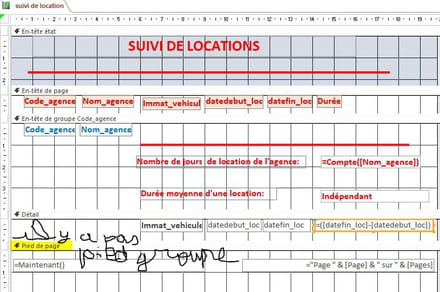 suivi de location
En-tête état
SUIVI DE LOCATIONS
En-tête de page
Code_agence Nom_agence Immat_vehicul datedebut_loc datefin_loc Durée
En-tête de groupe Code_agence
Code_agence Nom_agence
Nombre de jours de location de l'agence: =Compte([Nom_agence])
Durée moyenne d'une location: Indépendant
Détail
Immat_vehicule datedebut_loc datefin_loc =([datefin_loc]-[datedebut_loc])
Il y a pas
Pied de page
pied groupe
=Maintenant() ="Page " & [Page] & " sur " & [Pages]